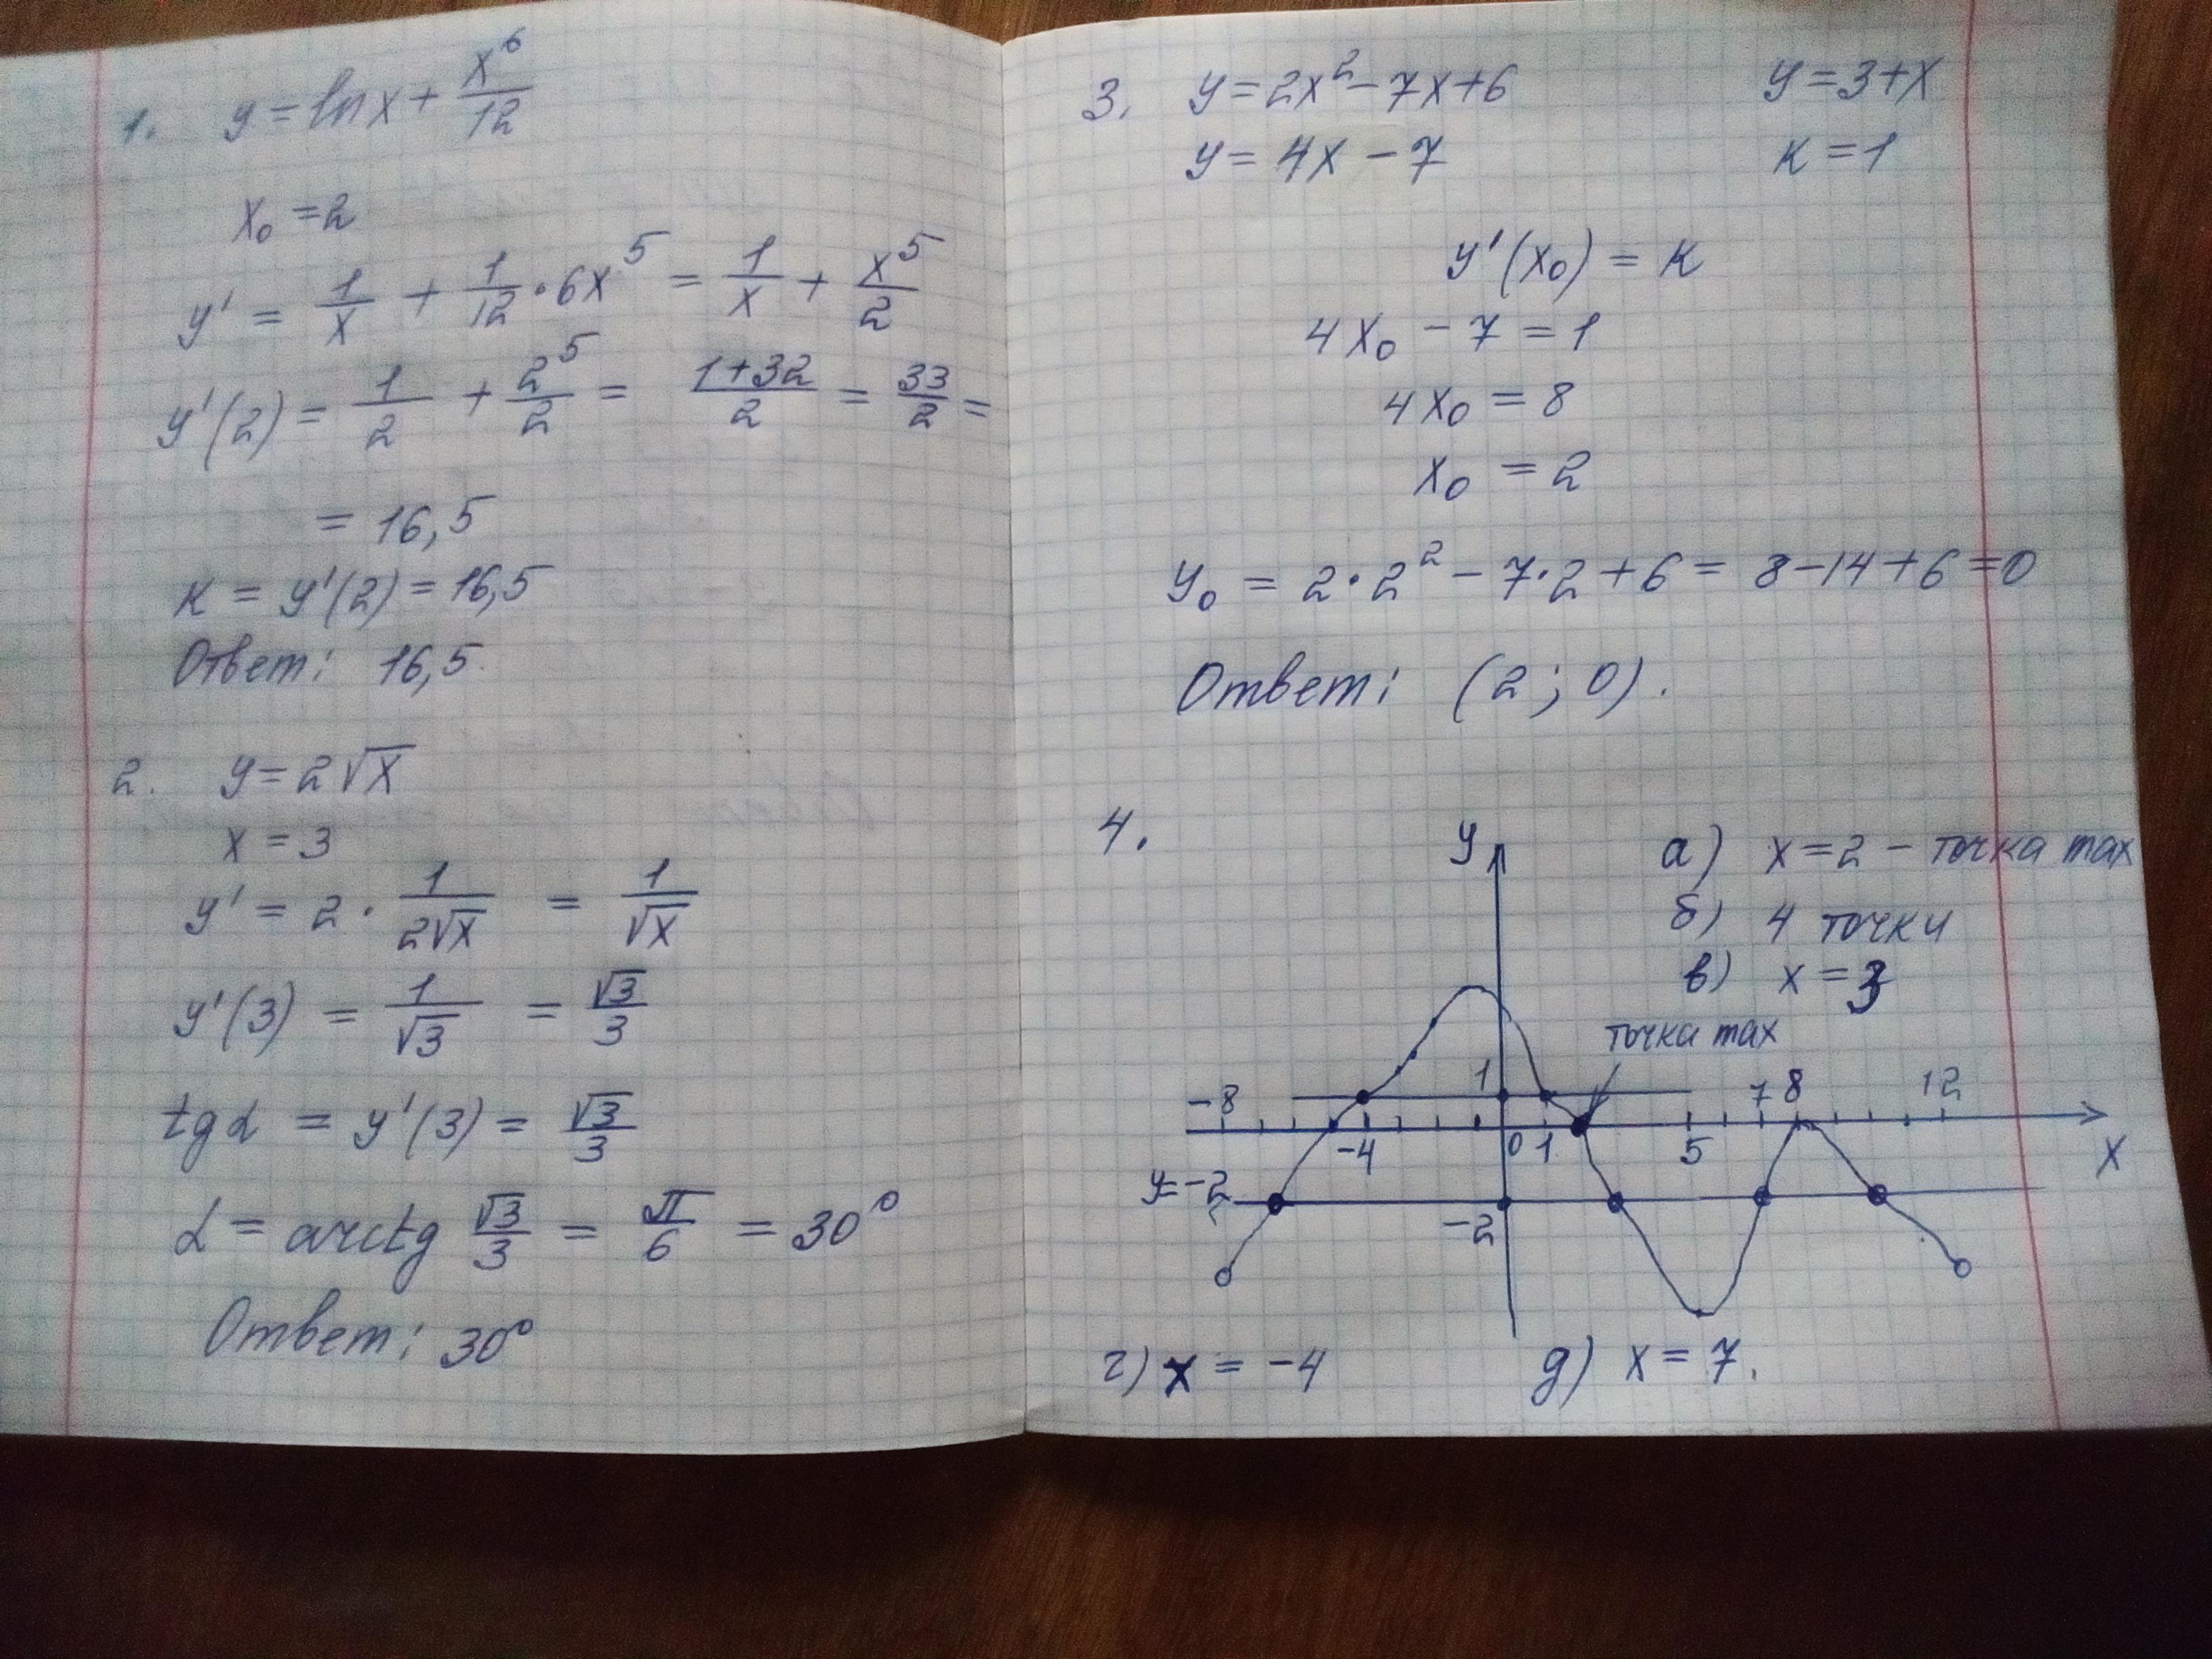 1. y = ln x + x⁶/12
x₀ = 2
y' = 1/x + 1/12 · 6x⁵ = 1/x + x⁵/2
y'(2) = 1/2 + 2⁵/2 = (1+32)/2 = 33/2 =
= 16,5
к = y'(2) = 16,5
Ответ: 16,5.
2. y = 2√x
x = 3
y' = 2 · 1/(2√x) = 1/√x
y'(3) = 1/√3 = √3/3
tg α = y'(3) = √3/3
α = arctg √3/3 = π/6 = 30°
Ответ: 30°
3. y = 2x² - 7x + 6 y = 3 + x
y = 4x - 7 к = 1
y'(x₀) = к
4x₀ - 7 = 1
4x₀ = 8
x₀ = 2
y₀ = 2·2² - 7·2 + 6 = 8 - 14 + 6 = 0
Ответ: (2; 0).
4. y а) x = 2 - точка max
б) 4 точки
в) x = 3
точка max
-8 1 7 8 12
-4 0 1 5 x
y = -2
-2
г) x = -4 д) x = 7.